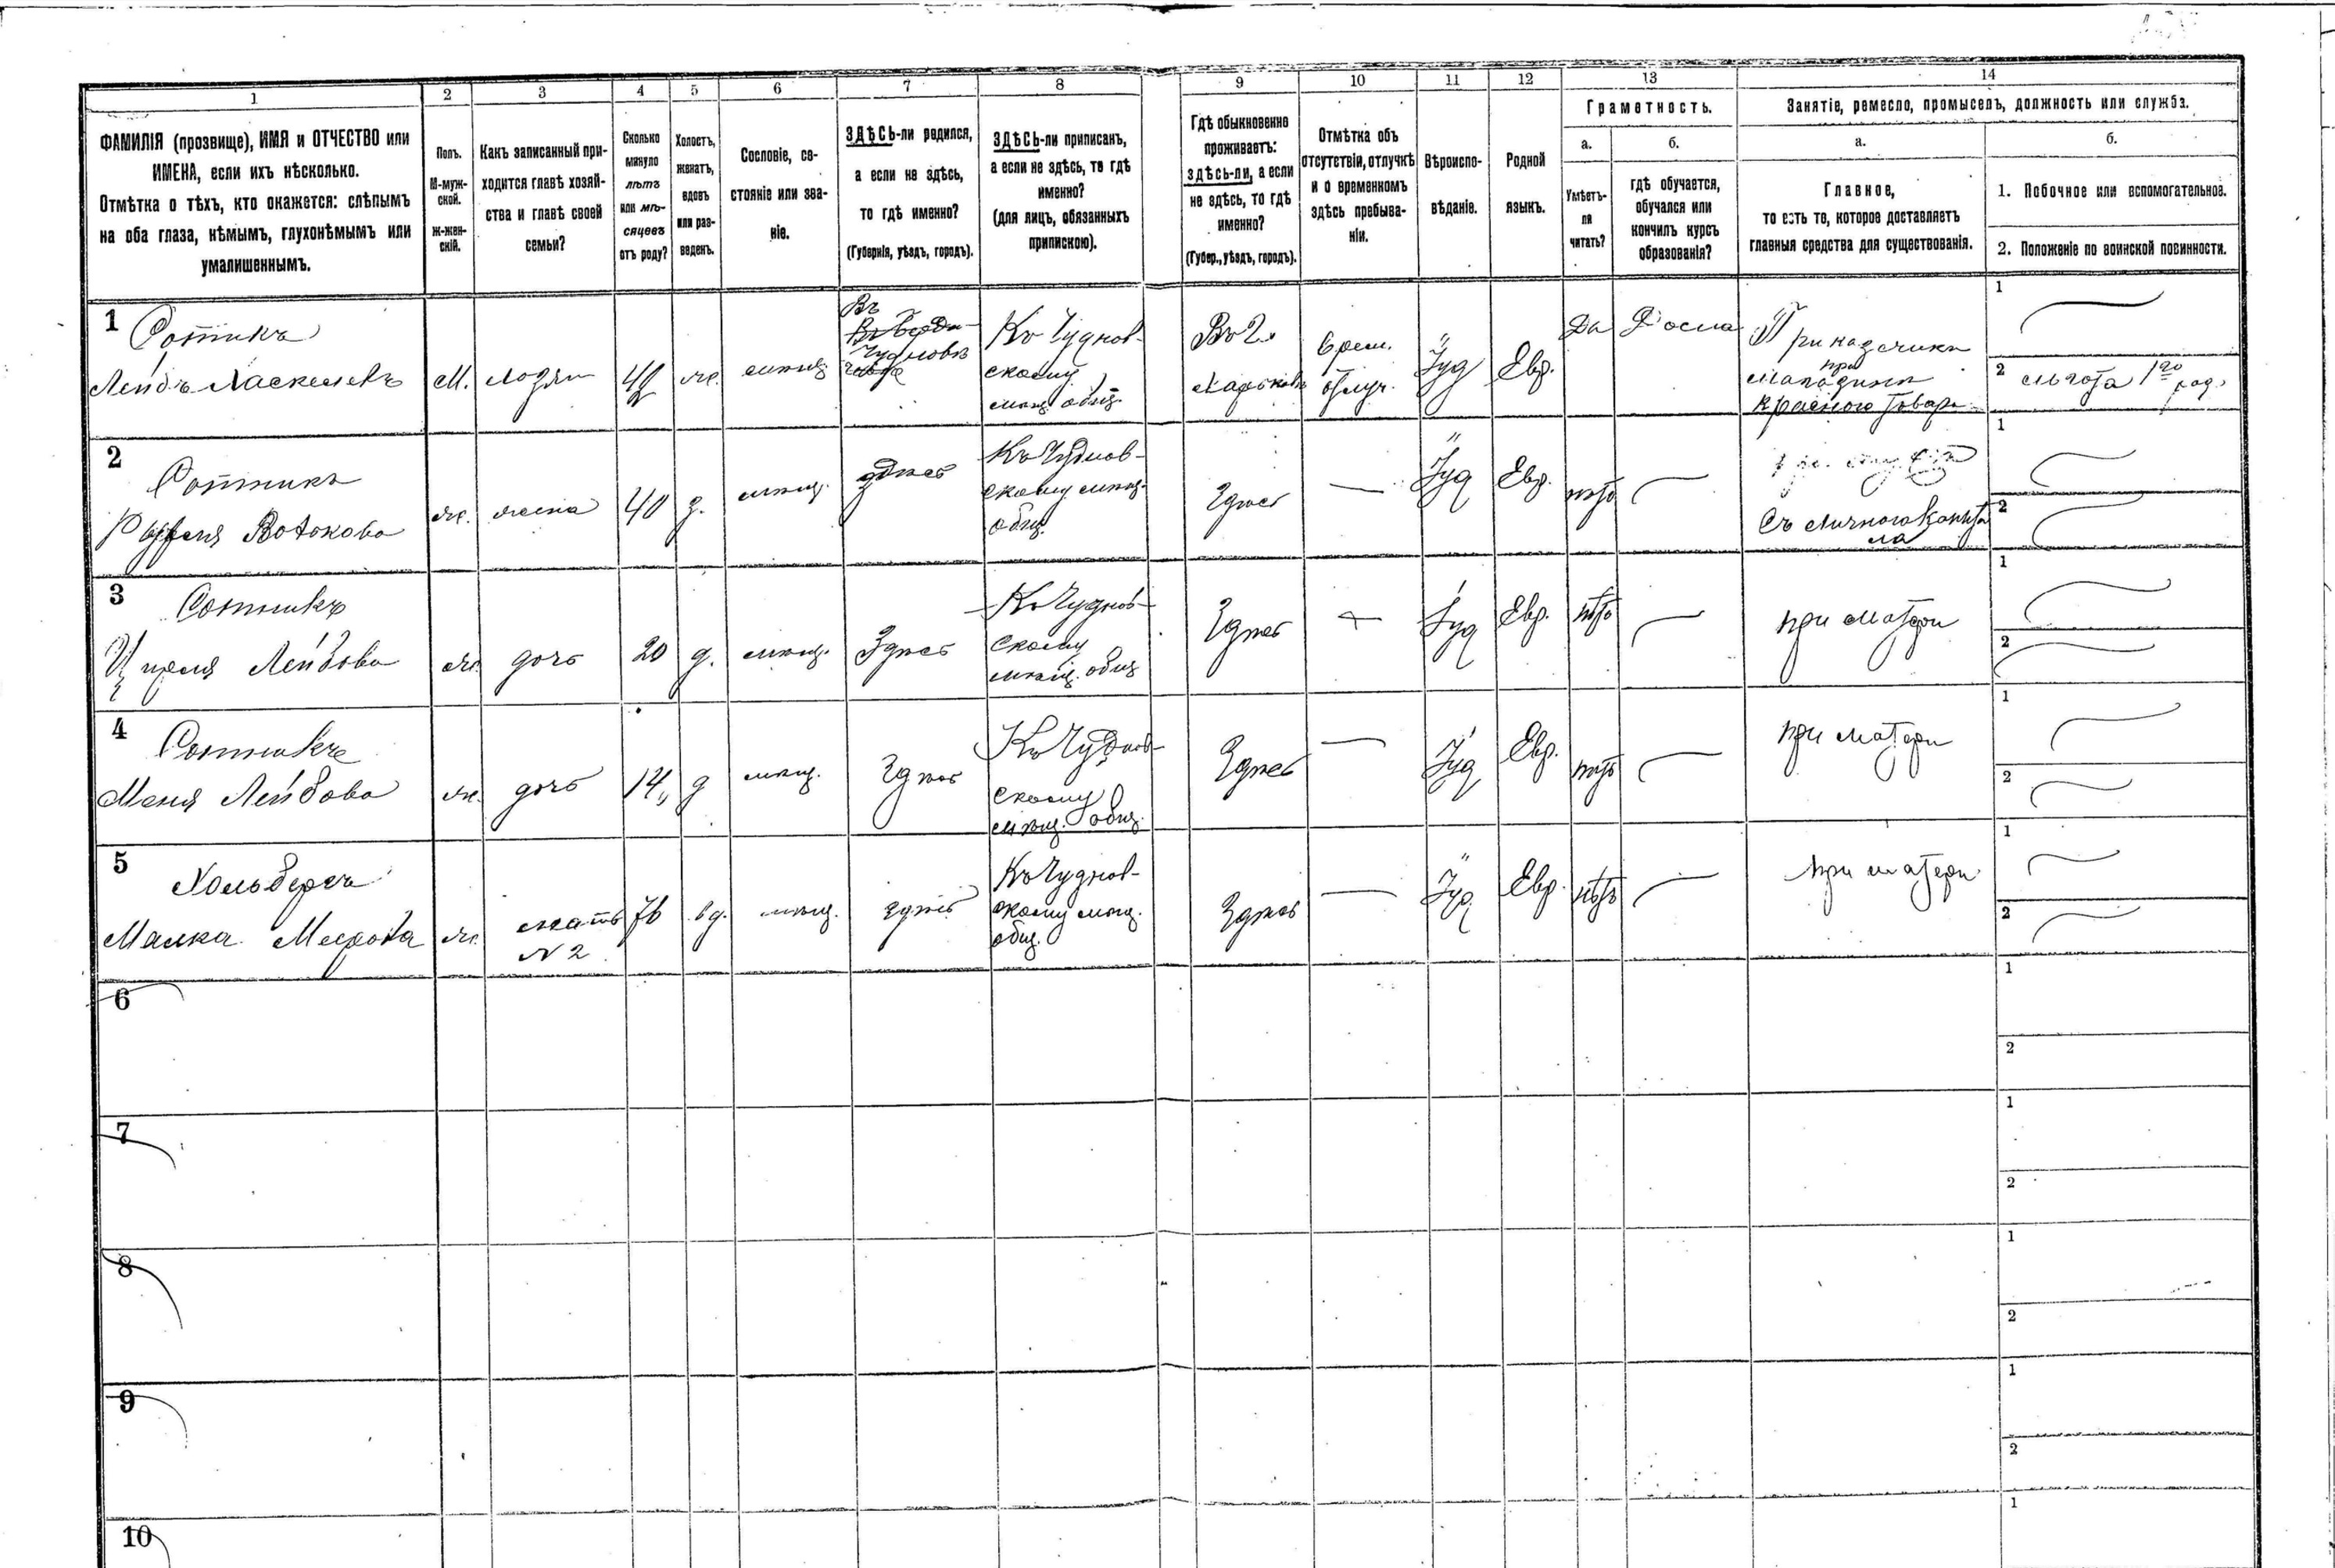 1
2
3
4
5
6
7
8
9
10
11
12
13
14
ФАМИЛІЯ (прозвище), ИМЯ и ОТЧЕСТВО или
ИМЕНА, если ихъ нѣсколько.
Отмѣтка о тѣхъ, кто окажется: слѣпымъ
на оба глаза, нѣмымъ, глухонѣмымъ или
умалишеннымъ.
Полъ.
М-муж-
ской.
Ж-жен-
скій.
Какъ записанный при-
ходится главѣ хозяй-
ства и главѣ своей
семьи?
Сколько
минуло
лѣтъ
или мѣ-
сяцевъ
отъ роду?
Холостъ,
женатъ,
вдовъ
или раз-
веденъ.
Сословіе, со-
стояніе или зва-
ніе.
ЗДѢСЬ-ли родился,
а если не здѣсь,
то гдѣ именно?
(Губернія, уѣздъ, городъ).
ЗДѢСЬ-ли приписанъ,
а если не здѣсь, то гдѣ
именно?
(для лицъ, обязанныхъ
припискою).
Гдѣ обыкновенно
проживаетъ:
здѣсь-ли, а если
не здѣсь, то гдѣ
именно?
(Губер., уѣздъ, городъ).
Отмѣтка объ
отсутствіи, отлучкѣ
и о временномъ
здѣсь пребыва-
ніи.
Вѣроиспо-
вѣданіе.
Родной
языкъ.
Грамотность.
а.
Умѣетъ-
ли
читать?
б.
гдѣ обучается,
обучался или
кончилъ курсъ
образованія?
Занятіе, ремесло, промыселъ, должность или служба.
а.
Главное,
то есть то, которое доставляетъ
главныя средства для существованія.
б.
1. Побочное или вспомогательное.
2. Положеніе по воинской повинности.
1
Сотникъ
Лейбъ
М.
42
ж.
мѣщ
Въ
Чудновѣ
Къ Чуднов-
скому
мѣщ. общ.
Въ г.
Харьковѣ
врем.
отлуч.
Іуд
Евр.
Да
Дома
Приказчикъ
при
магазинѣ
красного товара
1
2 льгота 1го раз.
2
Сотникъ
ж.
жена
40
з.
мѣщ.
здѣсь
Къ Чуднов-
скому мѣщ.
общ.
Здѣсь
—
Іуд
Евр.
нѣтъ
—
Съ личного капита
ла
1
2
3
Сотникъ
Лейбова
ж.
дочь
20
д.
мѣщ.
Здѣсь
Къ Чуднов-
скому
мѣщ. общ
Здѣсь
Іуд
Евр.
нѣтъ
—
при матери
1
2
4
Сотникъ
Меня Лейбова
ж.
дочь
14
д
мѣщ.
Здѣсь
Къ Чуднов-
скому
мѣщ. общ.
Здѣсь
—
Іуд
Евр.
нѣтъ
—
при матери
1
2
5
Хольберхъ
Малка
ж.
мать
N 2
76
вд.
мѣщ.
здѣсь
Къ Чуднов-
скому мѣщ.
общ.
Здѣсь
—
Іуд.
Евр.
нѣтъ
—
при матери
1
2
6
1
2
7
1
2
8
1
2
9
1
2
10
1